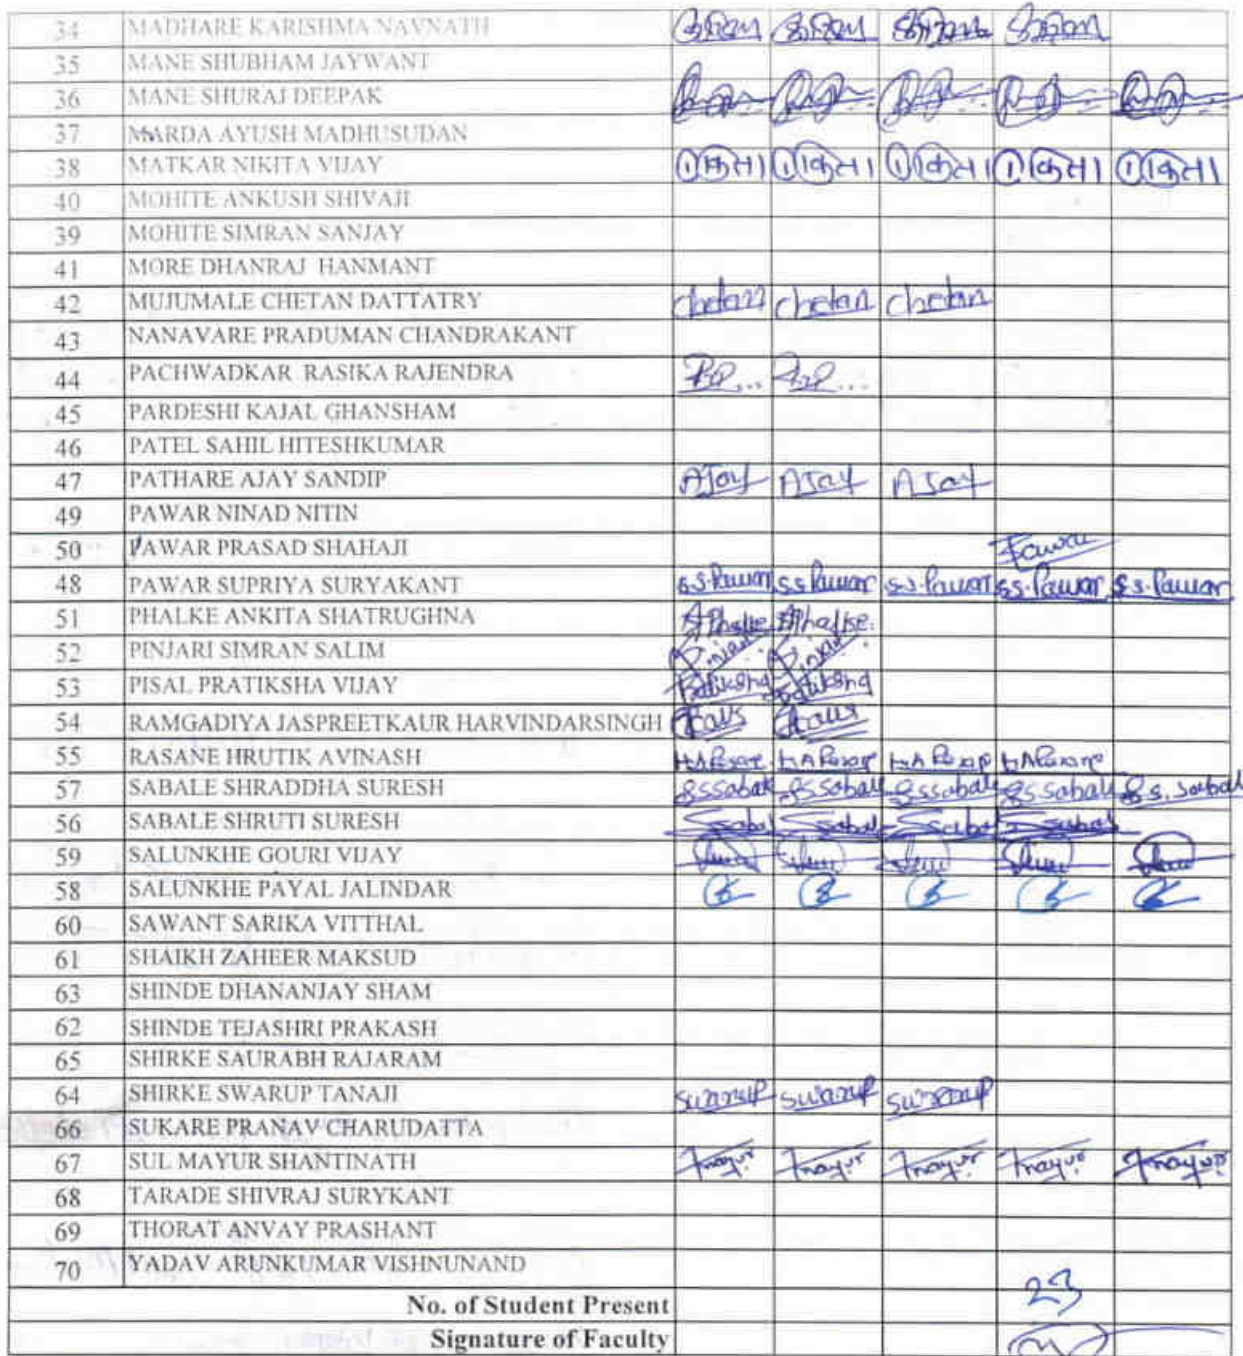 34 MADHARE KARISHMA NAVNATH
35 MANE SHUBHAM JAYWANT
36 MANE SHURAJ DEEPAK
37 MARDA AYUSH MADHUSUDAN
38 MATKAR NIKITA VIJAY
40 MOHITE ANKUSH SHIVAJI
39 MOHITE SIMRAN SANJAY
41 MORE DHANRAJ HANMANT
42 MUJUMALE CHETAN DATTATRY chetan chetan chetan
43 NANAVARE PRADUMAN CHANDRAKANT
44 PACHWADKAR RASIKA RAJENDRA
45 PARDESHI KAJAL GHANSHAM
46 PATEL SAHIL HITESHKUMAR
47 PATHARE AJAY SANDIP AJay AJay AJay
49 PAWAR NINAD NITIN
50 PAWAR PRASAD SHAHAJI
48 PAWAR SUPRIYA SURYAKANT s.s.Pawar s.s.Pawar s.s.Pawar s.s.Pawar s.s.Pawar
51 PHALKE ANKITA SHATRUGHNA APhalke APhalke
52 PINJARI SIMRAN SALIM
53 PISAL PRATIKSHA VIJAY
54 RAMGADIYA JASPREETKAUR HARVINDARSINGH
55 RASANE HRUTIK AVINASH
57 SABALE SHRADDHA SURESH
56 SABALE SHRUTI SURESH
59 SALUNKHE GOURI VIJAY
58 SALUNKHE PAYAL JALINDAR
60 SAWANT SARIKA VITTHAL
61 SHAIKH ZAHEER MAKSUD
63 SHINDE DHANANJAY SHAM
62 SHINDE TEJASHRI PRAKASH
65 SHIRKE SAURABH RAJARAM
64 SHIRKE SWARUP TANAJI swarup swarup swarup
66 SUKARE PRANAV CHARUDATTA
67 SUL MAYUR SHANTINATH mayur mayur mayur mayur mayur
68 TARADE SHIVRAJ SURYKANT
69 THORAT ANVAY PRASHANT
70 YADAV ARUNKUMAR VISHNUNAND
No. of Student Present 23
Signature of Faculty